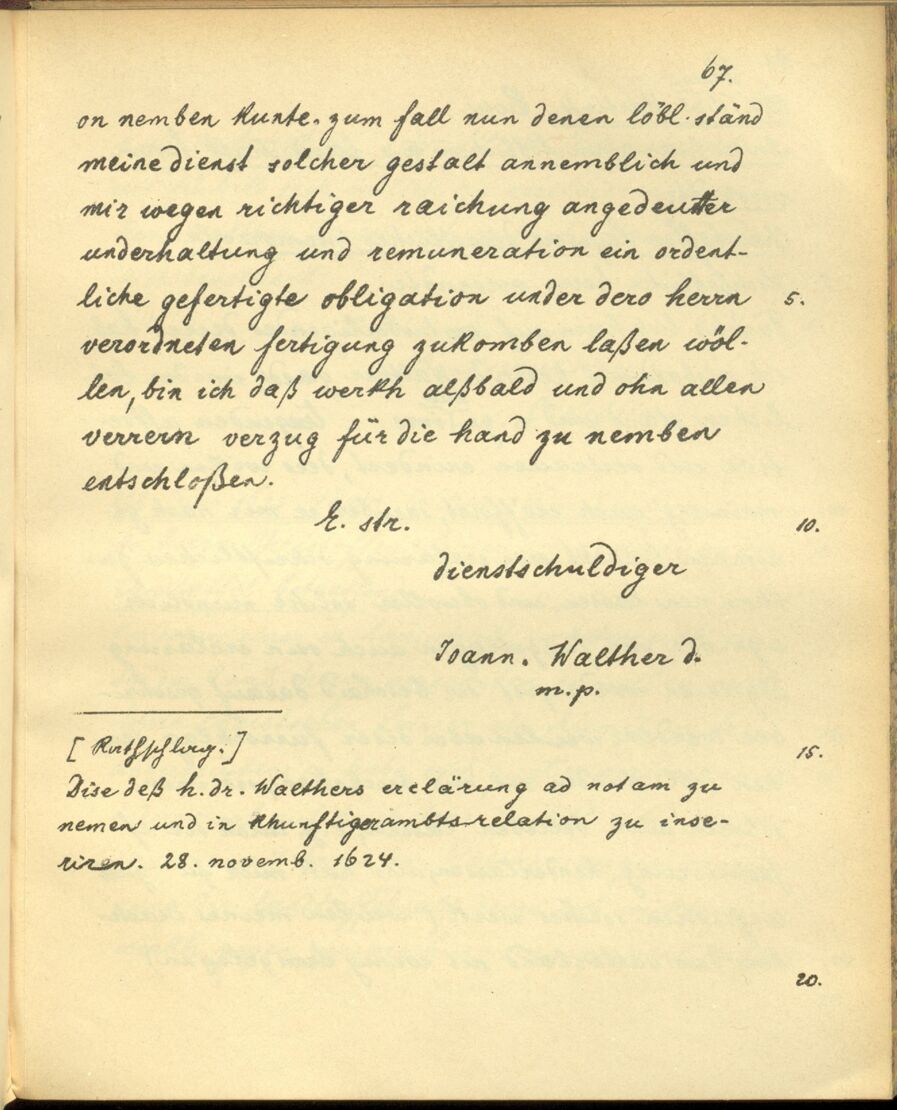 67.
on nemben kunte. zum fall nun denen löbl. ständ
meine dienst solcher gestalt annemblich und
mir wegen richtiger raichung angedeutter
underhaltung und remuneration ein ordent-
liche gefertigte obligation under dero herrn 5.
verordneten fertigung zukomben laßen wöl-
len, bin ich daß werkh alßbald und ohn allen
verrern verzug für die hand zu nemben
entschloßen.
E. str. 10.
dienstschuldiger
Ioann. Walther d.
m. p.
[Rathschlag:] 15.
Dise deß h. dr. Walthers erclärung ad notam zu
nemen und in khunftiger ambts relation zu inse-
riren. 28. novemb. 1624.
20.